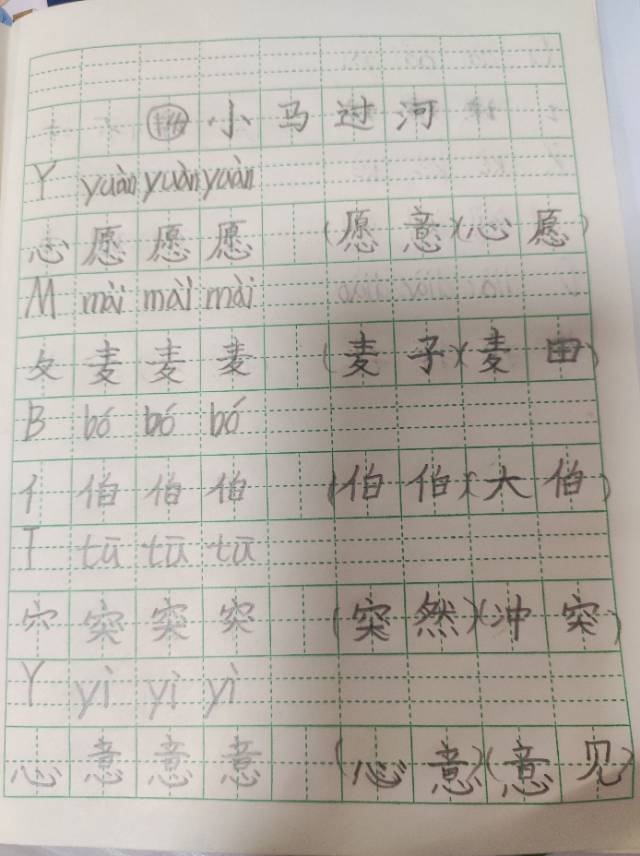 14 小马过河
Y yuàn yuàn yuàn
心 愿 愿 愿 (愿意)(心愿)
M mài mài mài
夂 麦 麦 麦 (麦子)(麦田)
B bó bó bó
亻 伯 伯 伯 (伯伯)(大伯)
T tū tū tū
穴 突 突 突 (突然)(冲突)
Y yì yì yì
心 意 意 意 (心意)(意见)